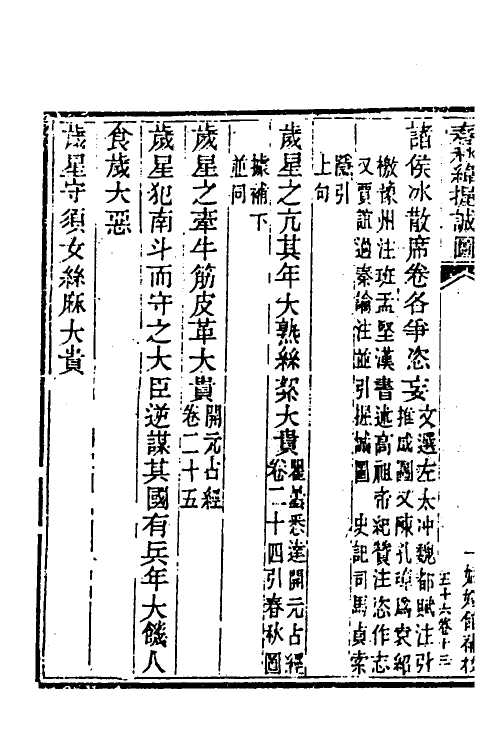 春秋緯握誠圖
一 嫏嬛館補校
五十六卷十三
諸侯冰散席卷各爭恣妄
文選左太沖魏都賦注引
推成圖又陳孔璋爲袁紹
檄豫州注班孟堅漢書述高祖帝紀贊注恣作志
又賈誼過秦論注並引握誠圖 史記司馬貞索
隱引
上句
歲星之亢其年大熟絲絮大貴
瞿曇悉達開元占經
卷二十四引春秋圖
據補下
並同
歲星之牽牛筋皮革大貴
開元占經
卷二十五
歲星犯南斗而守之大臣逆謀其國有兵年大饑人
食歲大惡
歲星守須女絲麻大貴